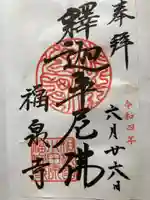 奉拜
令和四年
六月廿六日
釋迦牟尼佛
福泉寺